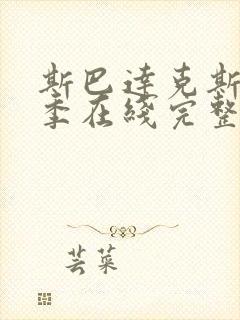 斯巴达克斯
季在线完整
芸菜